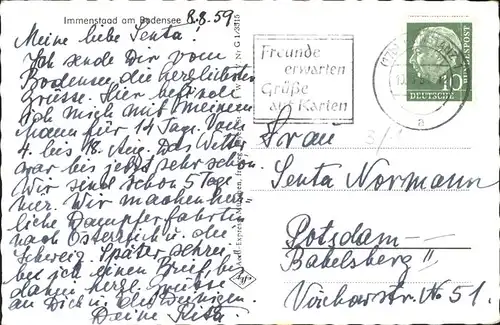 Immenstaad am Bodensee
8.8.59
Meine liebe Senta!
Ich sende Dir vom
Bodensee die herzlichsten
Grüsse. Hier befinde
Ich mich mit meinem
Mann für 14 Tage. Vom
4. bis 18. Aug. Das Wetter
war bis jetzt sehr schön.
Wir sind schon 5 Tage
hier. Wir machen herr-
liche Dampferfahrten
nach Österreich u. die
Schweiz. Später schrei
be ich einen Brief, bis
dahin herzl. Grüsse
an Dich u. die Deinigen.
Deine
Freunde
erwarten
Grüße
auf Karten
DEUTSCHE
BUNDESPOST
10
a
Agfa
Frau
Senta Normann
Potsdam-
Babelsberg II
Virchowstr. No 51.